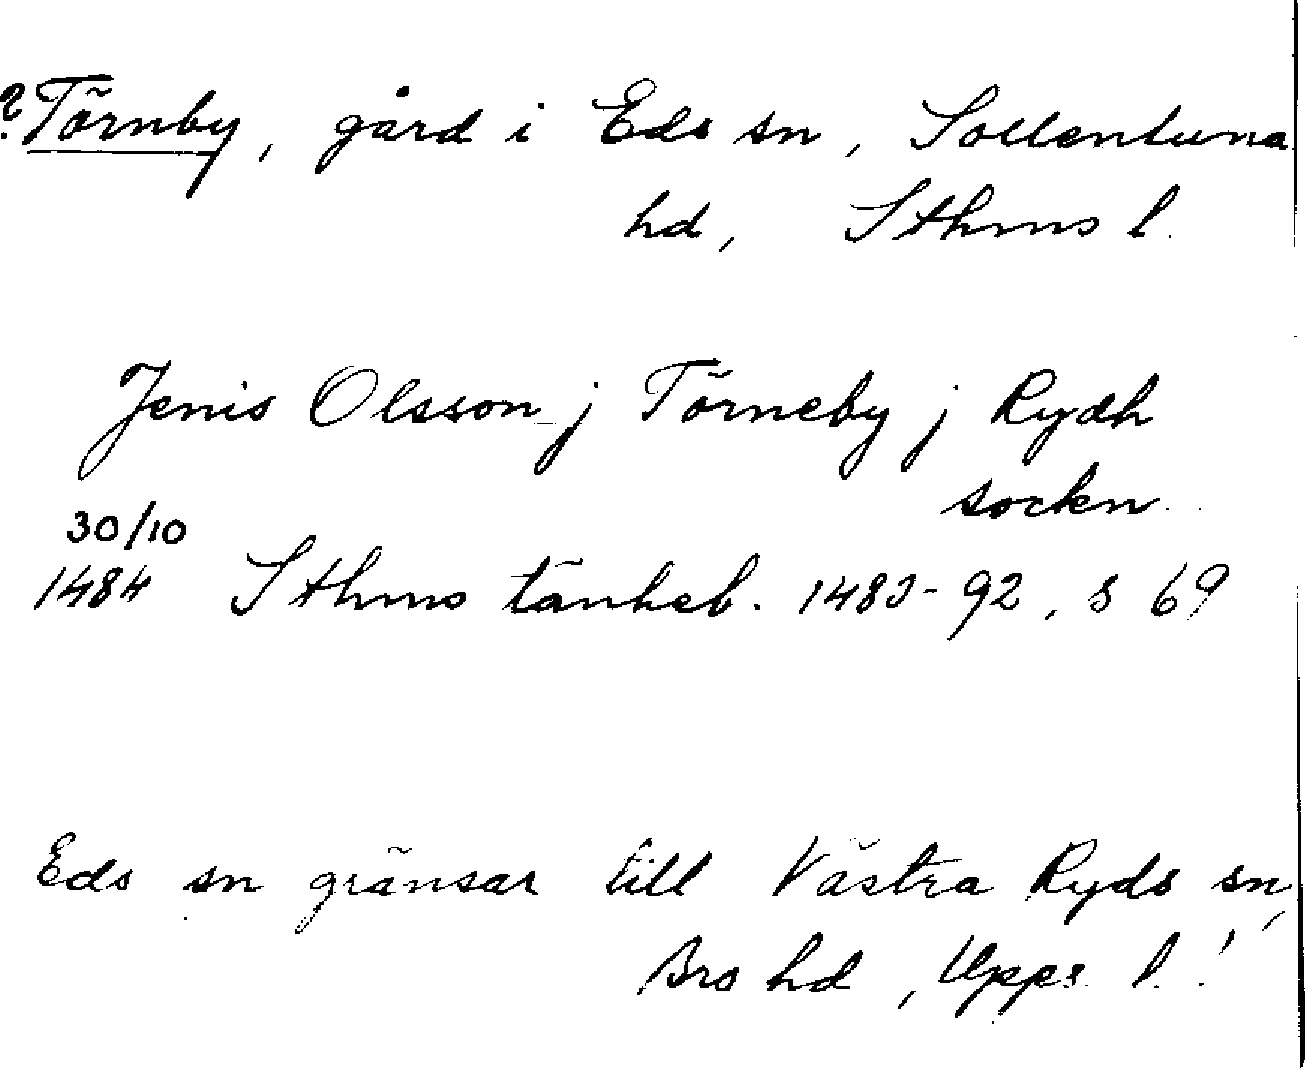 ? Törnby, gård i Eds sn, Sollentuna
hd, Sthms l.
Jenis Olsson j Törneby j Rydh
sockn
30/10
1484 Sthms tänkeb. 1483-92, s 69
Eds sn gränsar till Västra Ryds sn,
Bro hd, Upps. l.!